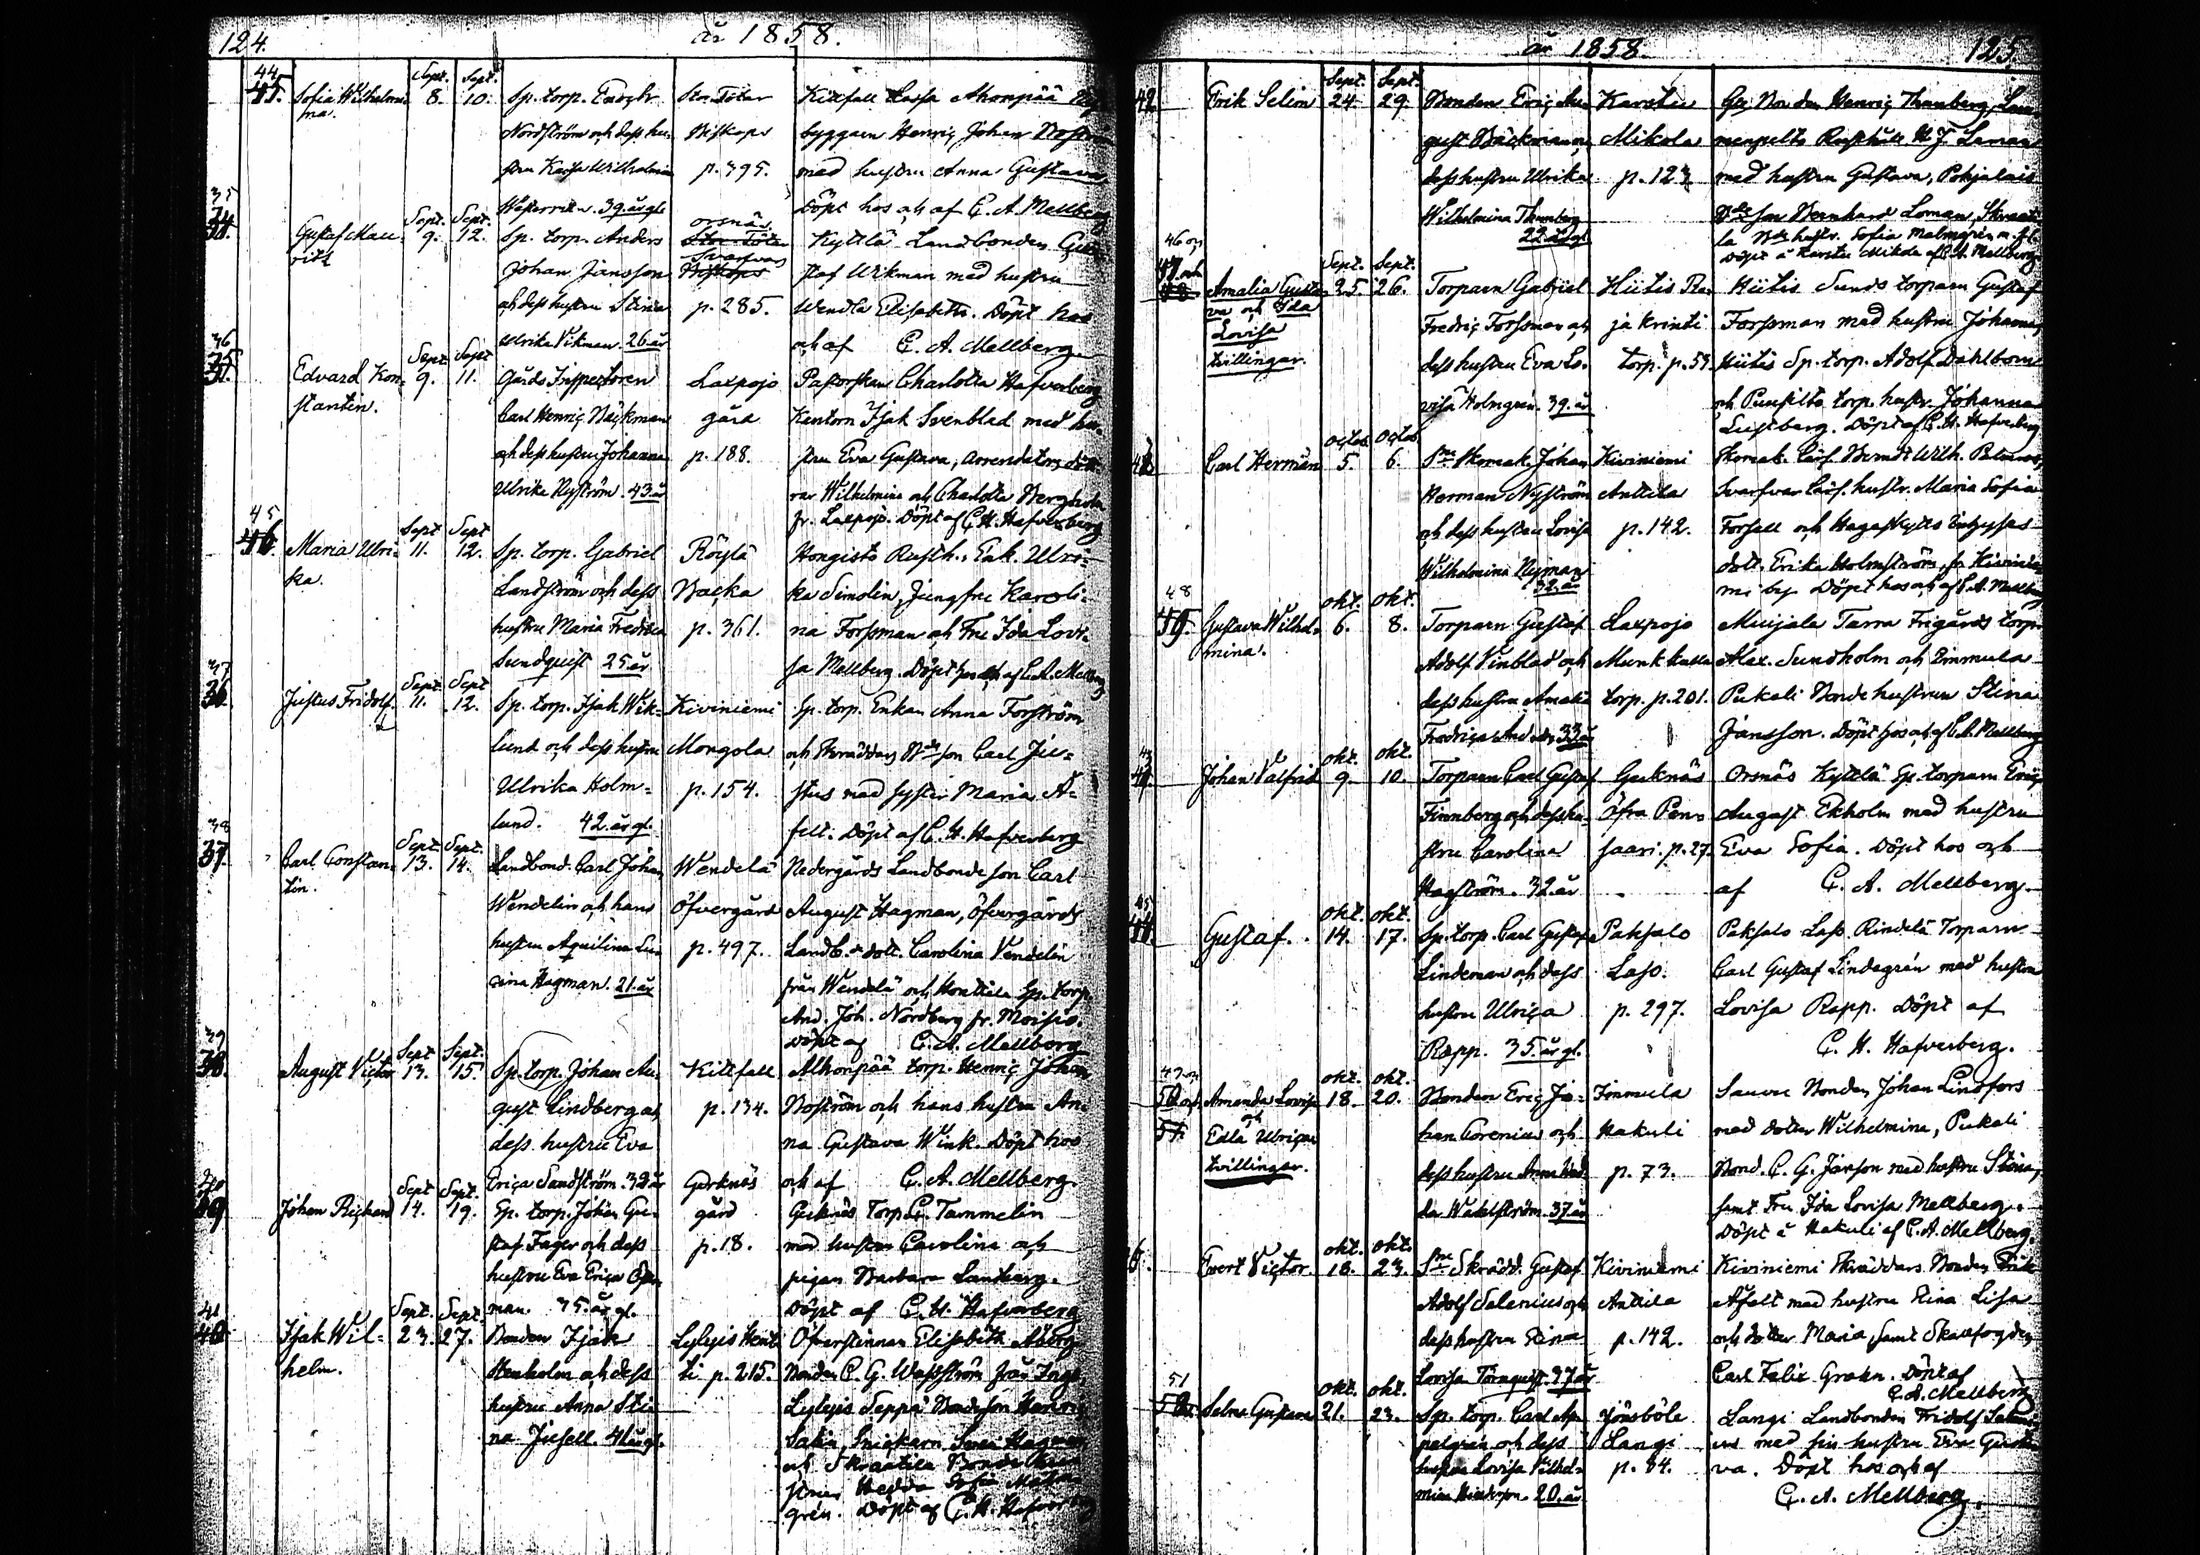 124.
år 1858.
44
45.
Sofia Wilhelmi
na.
Sept.
8.
Sept.
10.
Sp. torp.
Nordström och dess hu-
stru Kajsa Wilhelmina
39 år gl.
Biskops
p. 395.
Kittfall
byggaren Henric Johan
med hustru Anna Gustava
Döpt hos och af C. A. Mellberg
35
34.
Gustaf Mau-
ritz
Sept.
9.
Sept.
12.
Sp. torp. Anders
Johan Jansson
och dess hustru Stina
Ulrika Vikman. 26 år
orsnäs
Svarfvas
p. 285.
Kyttlä Landbonden Gu-
staf Wikman med hustru
Wendla Elisabeth. Döpt hos
och af C. A. Mellberg
36
35.
Edvard Kon-
stantin.
Sept.
9.
Sept.
11.
Gårds Inspectoren
Carl Henric Bäckman
och dess hustru Johanna
Ulrika Nyström. 43 år
Laxpojo
gård
p. 188.
Pastorskan Charlotta Hafverberg
Kantorn Isak Svenblad med hu-
stru Eva Gustava, arrendators dött-
rar Wilhelmina och Charlotta
fr. Laxpojo. Döpt af C. H. Hafverberg
45
46.
Maria Ulri-
ka.
Sept
11.
Sept
12.
Sp. torp. Gabriel
Landström och dess
hustru Maria Fredrica
Sundquist 25 år
Röylä
Backa
p. 361.
Hongisto Rusth. Enk. Ulri-
ka Simolin, Jungfru Karoli-
na Forssman och Fru Ida Lovi-
sa Mellberg. Döpt hos och af C. A. Mellberg
37
36.
Justus Fridolf.
Sept.
11.
Sept
12.
Sp. torp. Isak Wik-
lund och dess hustru
Ulrika Holm-
lund. 42 år gl.
Kiviniemi
Mangola
p. 154.
Sp. torp. Enkan Anna Forström
och son Carl Ju-
stus med syster Maria Å-
felt. Döpt af C. H. Hafverberg
38
37.
Carl Constan-
tin.
Sept.
13.
Sept.
14.
Landbond. Carl Johan
Wendelin och hans
hustru Aquilina Lu-
cina Hagman. 21 år
Wendelä
Öfvergård
p. 497.
Nedergårds Landbondeson Carl
August Hagman, Öfvergårds
Landb. dott. Carolina Vendelin
från Wendelä och Honttila Sp. torp.
And. Joh. Nordberg fr. Moisio.
Döpt af C. A. Mellberg
39
38.
August Victor
Sept
13.
Sept.
15.
Sp. torp. Johan Au-
gust Lindberg och
dess hustru Eva
Erica Sandström. 32 år
Kittfall
p. 134.
Alhonpää torp. Henric Johan
Boström och hans hustru An-
na Gustava Wink. Döpt hos
och af C. A. Mellberg.
40
39.
Johan Richard
Sept
14.
Sept.
19.
Sp. torp. Johan Gu-
staf Fager och dess
hustru Eva Erica
man. 35. år gl.
Gerknäs
gård
p. 18.
Gerknäs Torp. C. Tammelin
med hustru Carolina och
pigan Barbara Sandberg.
Döpt af C. H. Hafverberg
41
40.
Isak Wil-
helm.
Sept.
23.
Sept.
27.
Bonden Isak
Stenholm och dess
hustru Anna Sti-
na Jusell. 41 år gl.
Lylyjs Hent
ti p. 215.
Öfverstinnan Elisabeth Åberg
Bonden C. G. Wahlström från
Lylyjs Seppä Bondeson
och Skraatila
Hedda Sofia Malm-
grén. Döpt af C. H. Hafverberg
år 1858.
125.
42
Erik Selim
Sept.
24.
Sept.
29.
Bonden Eric Au-
gust Bäckman och
dess hustru Ulrika
Wilhelmina Thunberg
22 år gl
Karstu
Mikola
p. 123
Bonden Henric Thunberg,
H. J. Laman
med hustru Gustava, Pohjalais
son Bernhard Loman,
hustr. Sofia Malmgrén m. fl.
Döpt i Karstu Mikola af C. A. Mellberg
46 och
47 och
48
Amalia Gusta-
va och Ida
Lovisa
tvillingar.
Sept.
25.
Sept.
26.
Torparn Gabriel
Fredric Forssman och
dess hustru Eva Lo-
visa Holmgren. 39. år
Hiitis
torp. p. 53.
Hiitis Sunds torparn Gustaf
Forssman med hustru Johanna,
Hiitis Sp. torp. Adolf Dahlbom
och torp. hustr. Johanna
Lustberg. Döpt af C. H. Hafverberg
Carl Herman
octob.
5.
octob.
6.
Johan
Herman Nyström
och dess hustru Lovisa
Wilhelmina Nyman
32. år
Kiviniemi
Anttila
p. 142.
Wilh.
hustr. Maria Sofia
Forsell och
dott. Erika Holmström, fr. Kivinie-
mi by. Döpt hos och af C. A. Mellberg
48
Gustava Wilhel-
mina.
okt.
6.
okt.
8.
Torparn Gustaf
Adolf Vinblad och
dess hustru Amalia
33 år
Laxpojo
Munkkulla
torp. p. 201.
Muijala Tarra Frigårds torp.
Alex. Sundholm och Immula
Pukali Bonde hustrun Stina
Jansson. Döpt hos och af C. A. Mellberg
43
Johan Valfrid
okt.
9.
okt.
10.
Torparn Carl Gustaf
Finnberg och dess hu-
stru Carolina
Hagström. 32. år
Gerknäs
Öfra Pen-
saari. p. 27.
Orsnäs Kyttelä Sp. torparn Eric
August Ekholm med hustru
Eva Sofia. Döpt hos och
af C. A. Mellberg
45
44.
Gustaf.
okt.
14.
okt.
17.
Sp. torp. Carl Gustaf
Lindeman och dess
hustru Ulrica
Rapp. 35. år gl.
Paksalo
Laso.
p. 297.
Paksalo Laso Rindelä Torparn
Carl Gustaf Lindegrén med hustru
Lovisa Rapp. Döpt af
C. H. Hafverberg.
50 och
51.
Amanda Lovisa
och
Edla Ulrica
tvillingar.
okt.
18.
okt.
20.
Bonden Eric Jo-
han Grenius och
dess hustru
Wahlström. 37 år
Immula
Hakuli
p. 73.
Sauru Bonden Johan Lindfors
med dotter Wilhelmina, Pukali
Bond. C. G. Janson med hustru Stina,
samt Fru Ida Lovisa Mellberg.
Döpt i Hakuli af C. A. Mellberg.
Evert Victor.
okt.
18.
okt.
23.
Skrädd. Gustaf
Adolf Salenius och
dess hustru Stina
Lovisa Törnquist. 37 år
Kiviniemi
Anttila
p. 142.
Kiviniemi
med hustru Stina Lisa
och dotter Maria, samt Skallfogden
Carl Felix Grahn. Döpt af
C. A. Mellberg
51
Selma Gustava
okt.
21.
okt.
23.
Sp. torp. Carl Ap-
pelgrén och dess
hustru Lovisa Vilhel-
mina 20. år
Jönsböle
Langi
p. 84.
Langi Landbonden Fridolf
med sin hustru Eva Gusta-
va. Döpt hos och af
C. A. Mellberg.